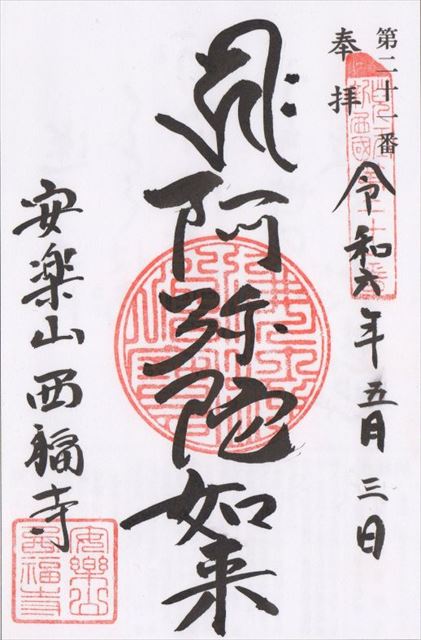 第二十一番
奉拝
令和六年五月三日
阿弥陀如来
安楽山西福寺
安樂山
西福寺